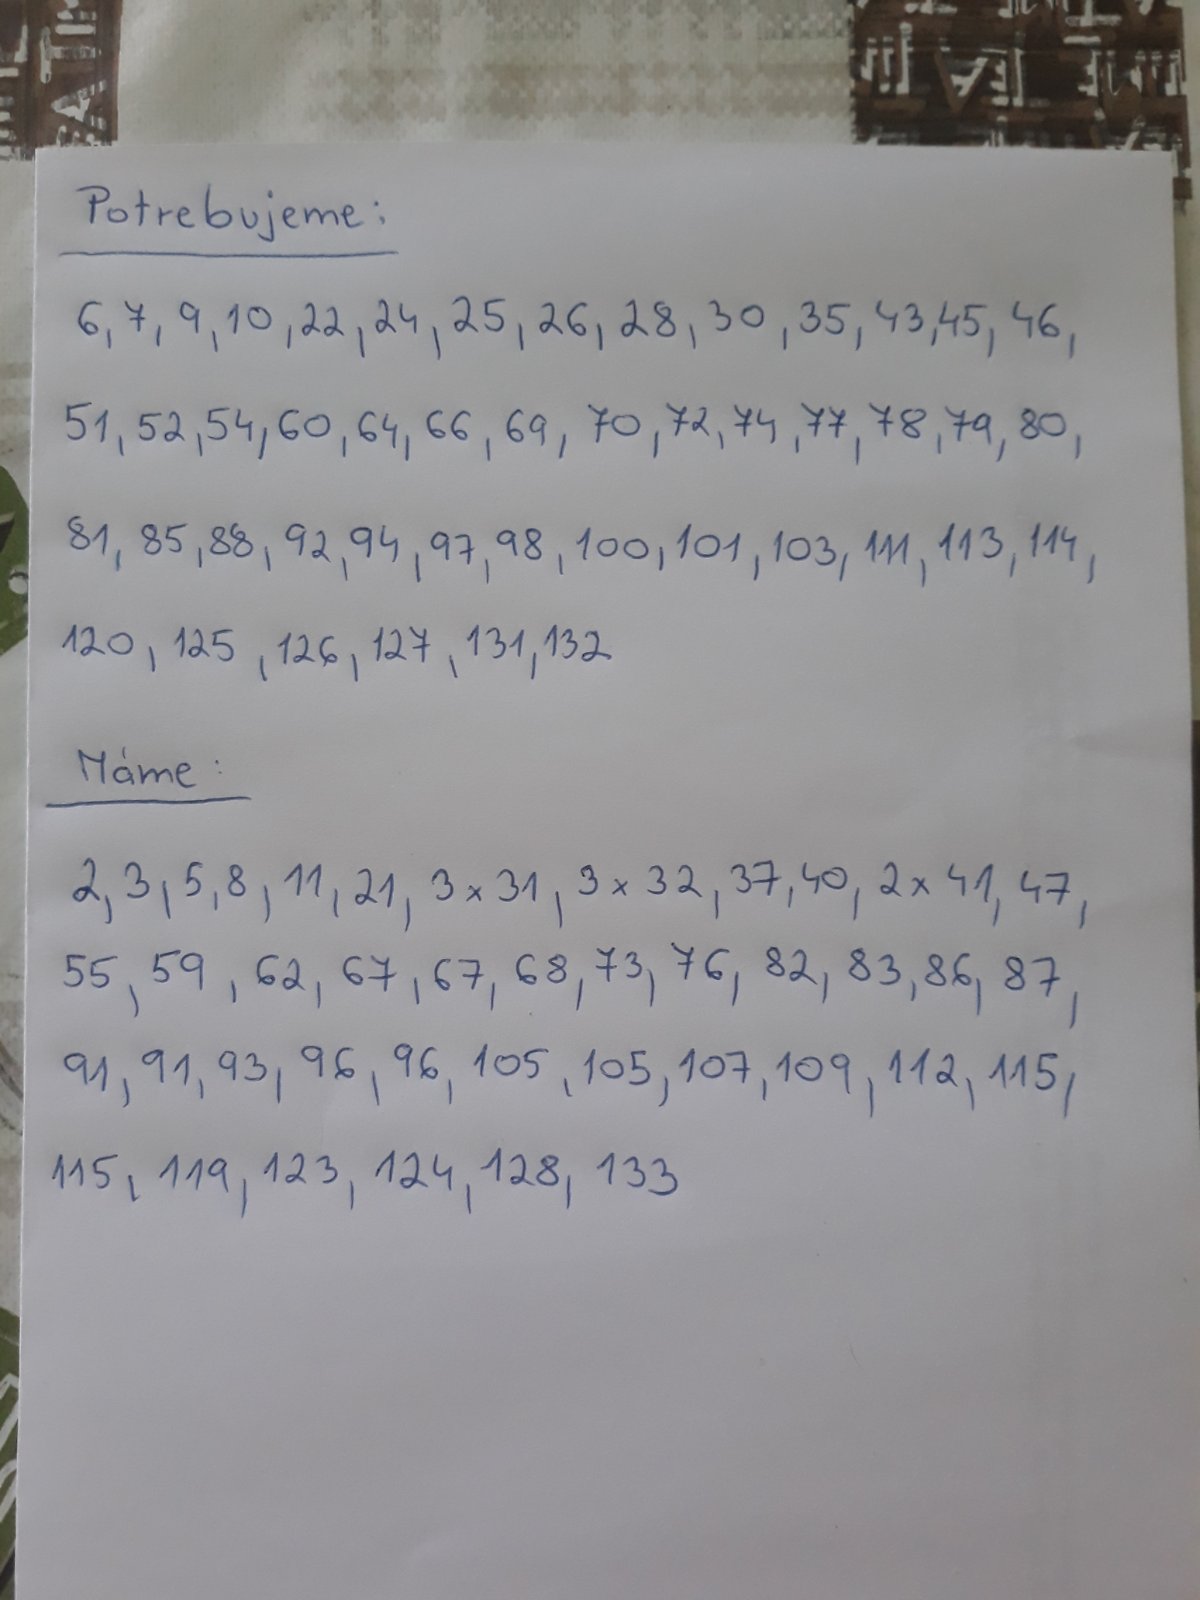 Potrebujeme:
6, 7, 9, 10, 22, 24, 25, 26, 28, 30, 35, 43, 45, 46,
51, 52, 54, 60, 64, 66, 69, 70, 72, 74, 77, 78, 79, 80,
81, 85, 88, 92, 94, 97, 98, 100, 101, 103, 111, 113, 114,
120, 125, 126, 127, 131, 132
Máme:
2, 3, 5, 8, 11, 21, 3x31, 3x32, 37, 40, 2x41, 47,
55, 59, 62, 67, 67, 68, 73, 76, 82, 83, 86, 87,
91, 91, 93, 96, 96, 105, 105, 107, 109, 112, 115,
115, 119, 123, 124, 128, 133